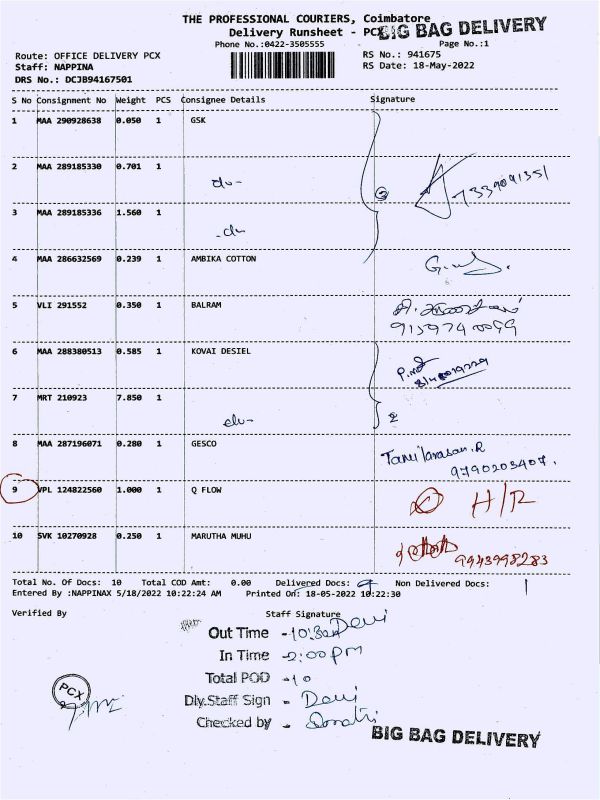 THE PROFESSIONAL COURIERS, Coimbatore
Delivery Runsheet - PCX
BIG BAG DELIVERY
Phone No.:0422-3505555
Page No.:1
Route: OFFICE DELIVERY PCX
RS No.: 941675
Staff: NAPPINA
RS Date: 18-May-2022
DRS No.: DCJB94167501
S No Consignment No Weight PCS Consignee Details Signature
1 MAA 290928638 0.050 1 GSK
2 MAA 289185330 0.701 1
du-
③ 7339091351
3 MAA 289185336 1.560 1
-du
4 MAA 286632569 0.239 1 AMBIKA COTTON
5 VLI 291552 0.350 1 BALRAM
9159740099
6 MAA 288380513 0.585 1 KOVAI DESIEL
7 MRT 210923 7.850 1
du-
2
8 MAA 287196071 0.280 1 GESCO
Tamilarasan.R
9790203407.
9 VPL 124822560 1.000 1 Q FLOW
H/R
10 SVK 10270928 0.250 1 MARUTHA MUHU
9943998283
Total No. Of Docs: 10 Total COD Amt: 0.00 Delivered Docs: 9 Non Delivered Docs: 1
Entered By :NAPPINAX 5/18/2022 10:22:24 AM Printed On: 18-05-2022 10:22:30
Verified By Staff Signature
Out Time - Devi
In Time - 2:00pm
Total POD - 10
Dly.Staff Sign - Devi
Checked by -
PCX
BIG BAG DELIVERY